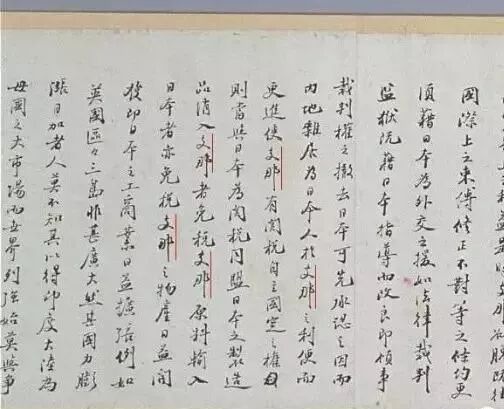 國際上之束縛修正不對等之條約更
須藉日本為外交之援如法律裁判
監獄既藉日本指導而改良即領事
裁判權之撤去日本可先承認之因而
內地雜居為日本人於支那之利便而
更進使支那有關稅自主國定之權
則當與日本為關稅同盟日本之製造
品消入支那者免稅支那原料輸入
日本者亦免稅支那之物產日益開
發即日本之工商業日益擴張例如
英國區々三島非甚廣大然其國力膨
漲日加者人莫不知其以得印度大陸為
母國之大市場而世界列強始莫與爭